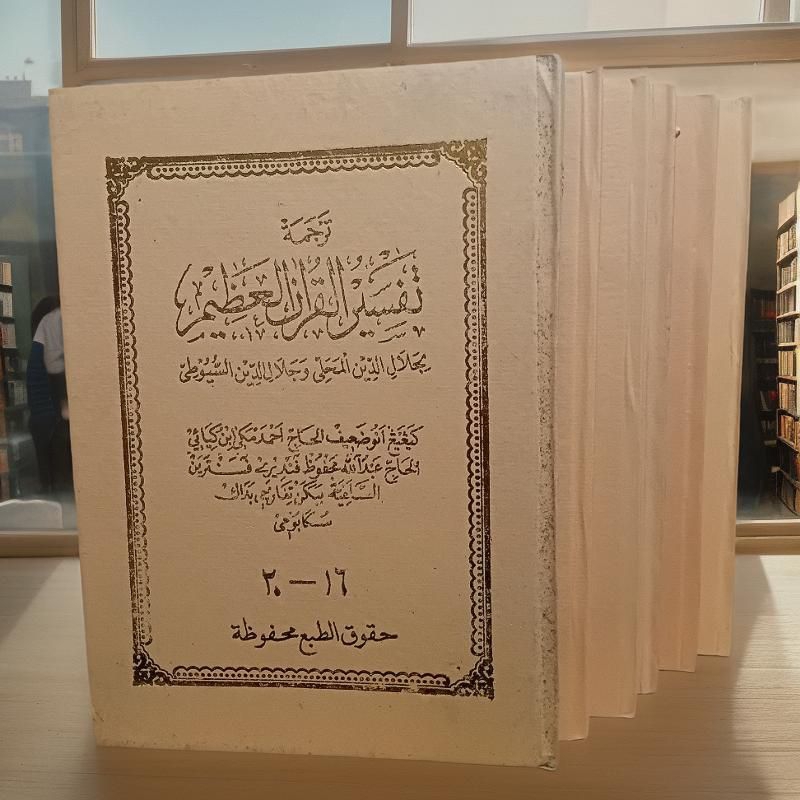 تَرْجَمَةْ
تَفْسِيْرُ الْقُرْاٰنِ الْعَظِيْمِ
لِجَلَالِ الدِّيْنِ الْمَحَلِّىْ وَجَلَالِ الدِّيْنِ السُّيُوْطِىْ
كَيَڠيڠ انوضعيف الحاج احمد مكى ابن كياهى
الحاج عبد الله محفوظ فنديرى فسنترين
السلامية
سكابومى
١٦ — ٢٠
حقوق الطبع محفوظة